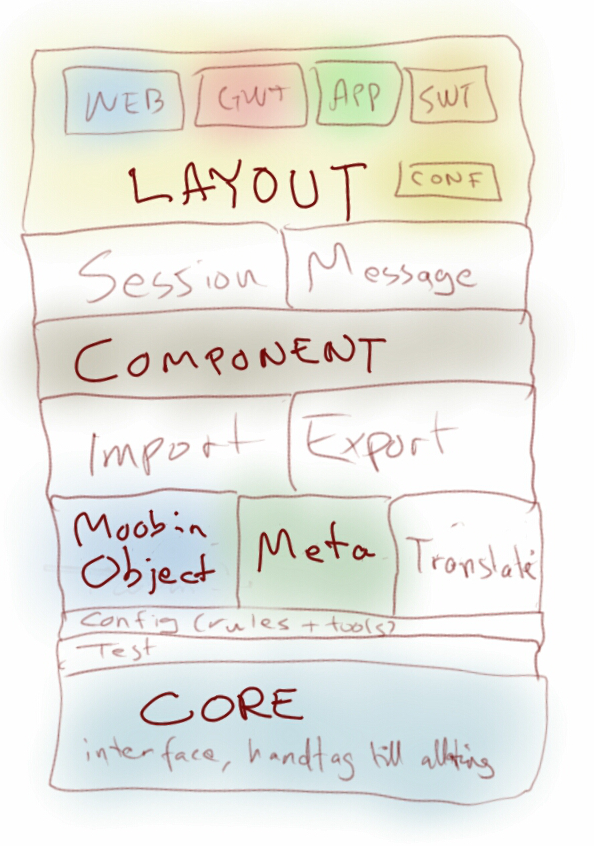 WEB GWT APP SWT
LAYOUT CONF
Session Message
COMPONENT
Import Export
Moobin Meta Translate
Object
Config (rules + tools)
Test
CORE
interface, handtag till allting